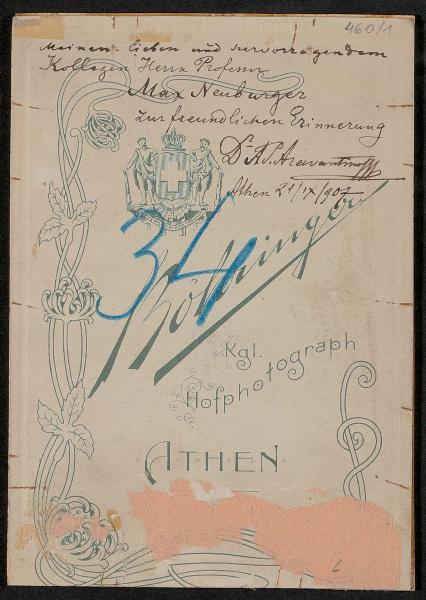 460/1
Meinem lieben und hervorragendem
Kollegen Herrn Professor
Max Neuburger
zur freundlichen Erinnerung
Dr A.P. Aravantinos
Athen 21/IX/907
34
Böhringer
Kgl.
Hofphotograph
ATHEN